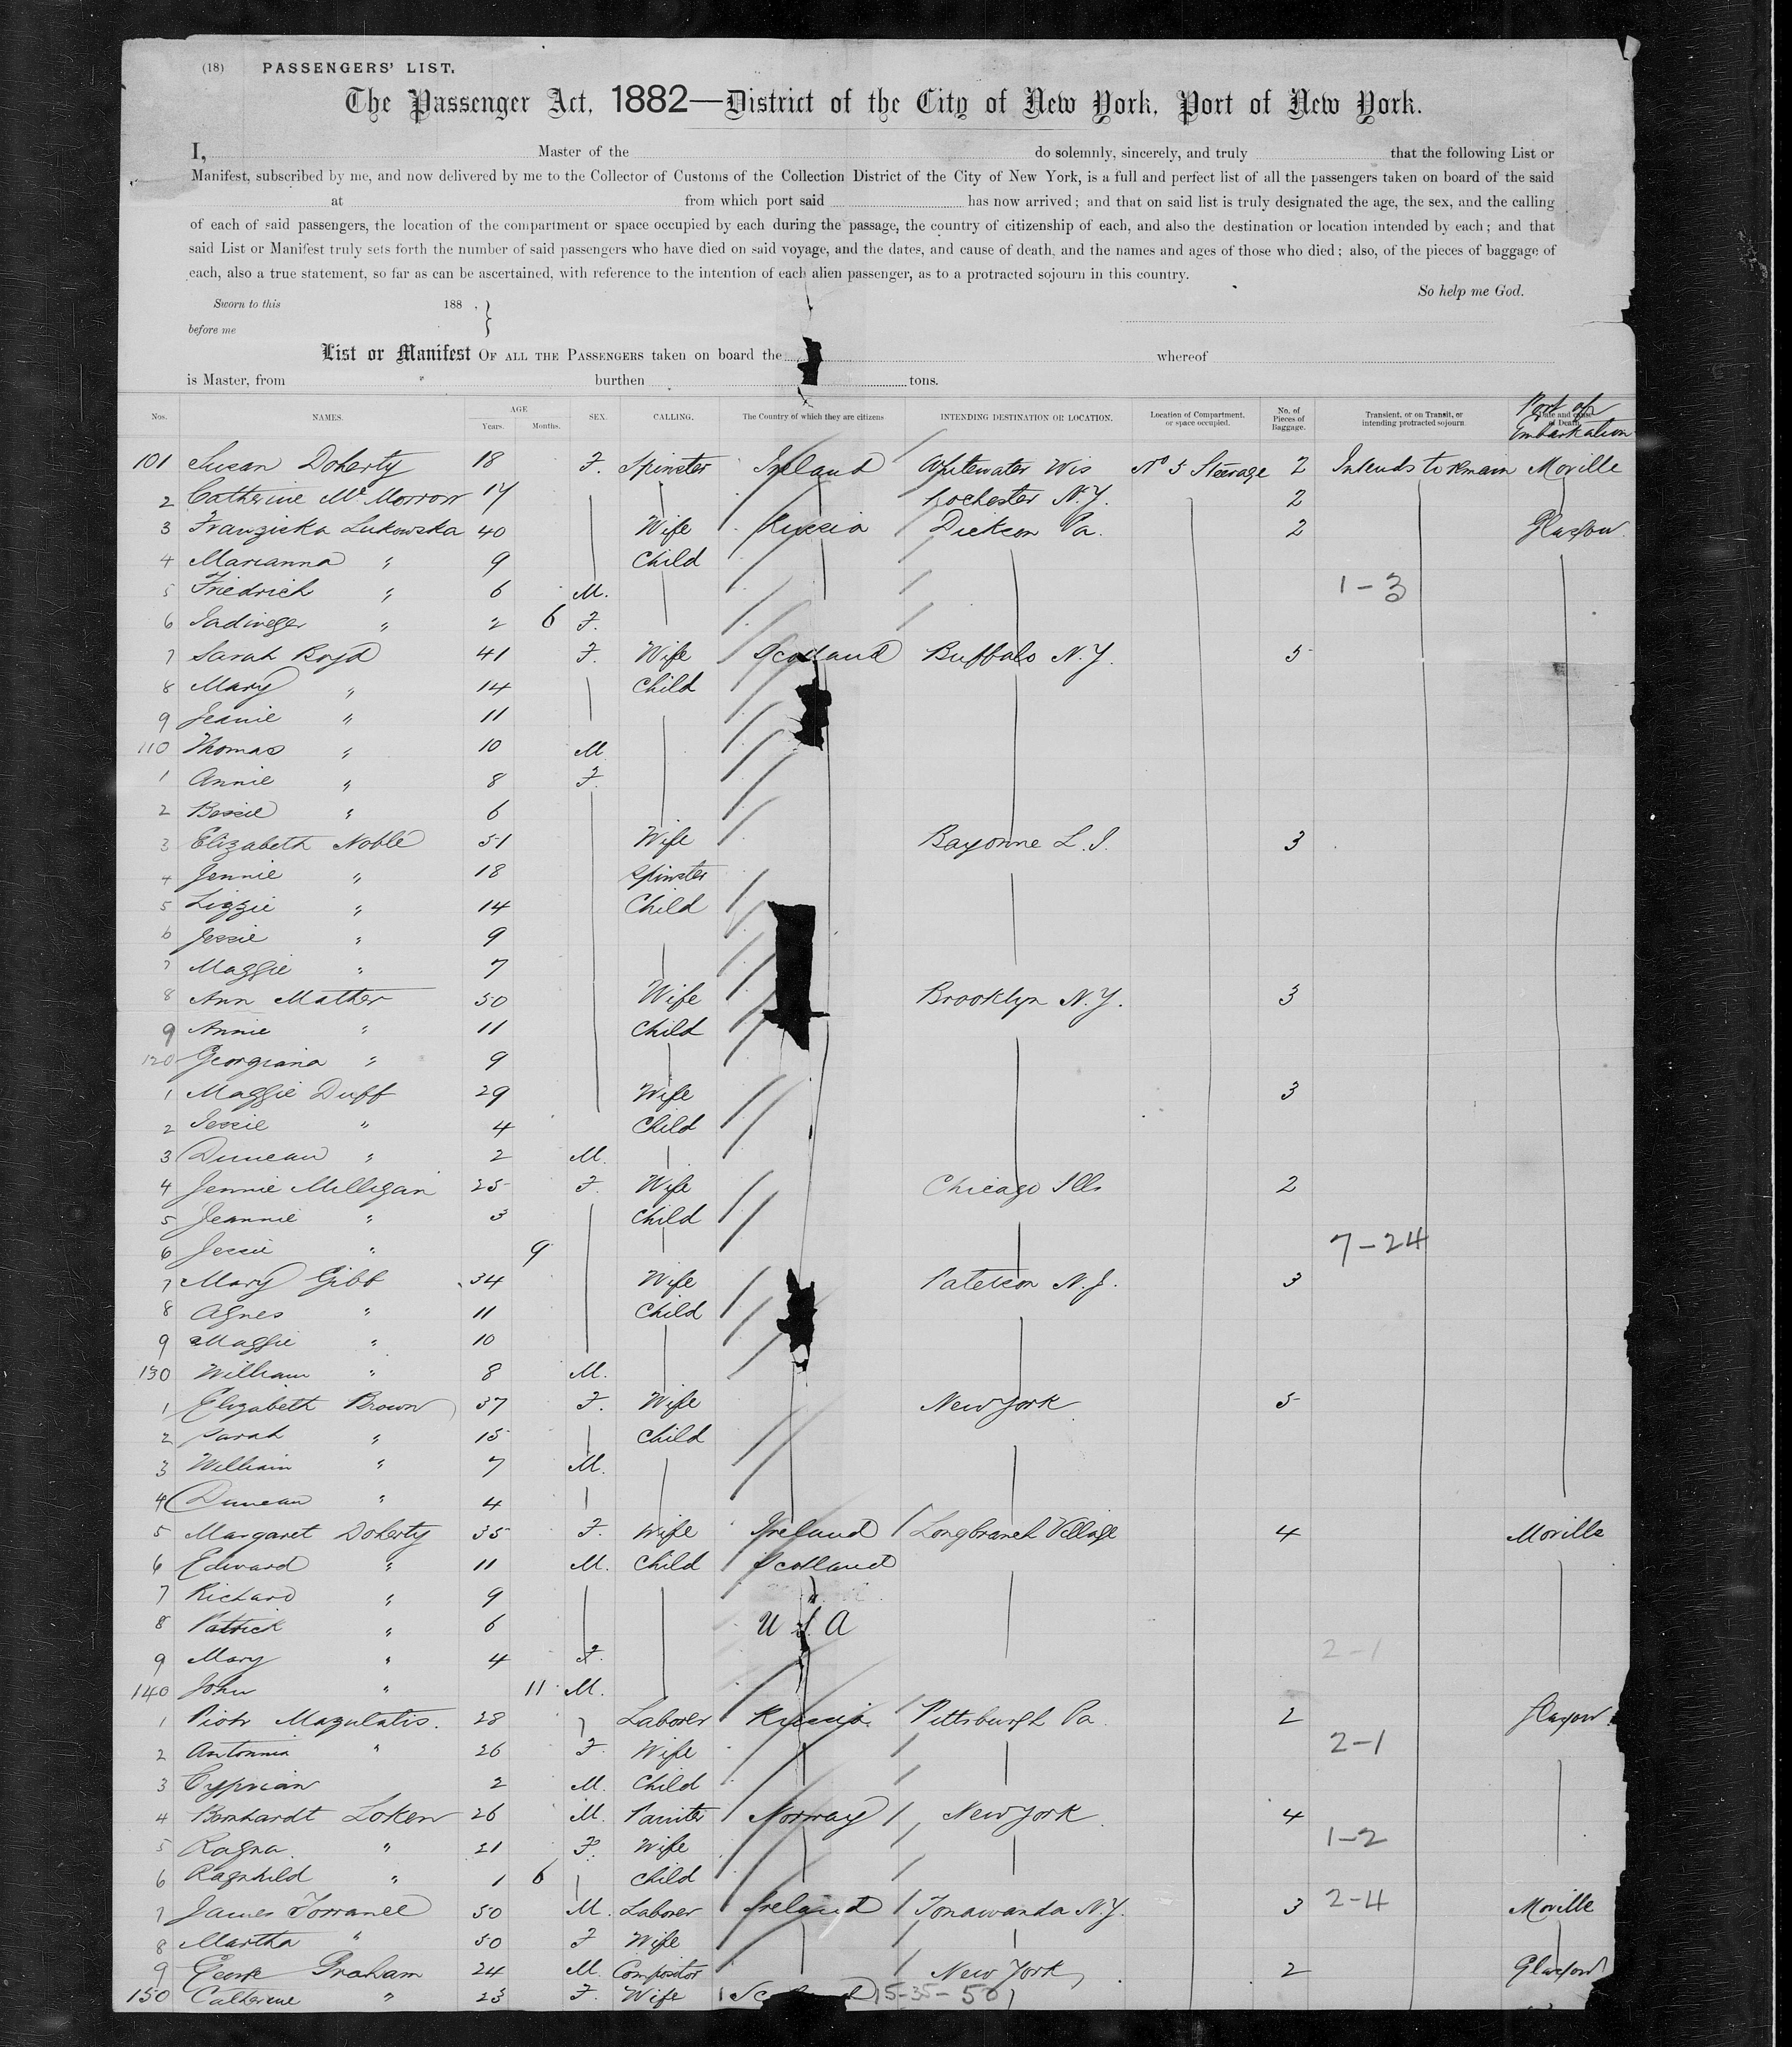 (18) PASSENGERS' LIST.
The Passenger Act, 1882—District of the City of New York, Port of New York.
I, Master of the do solemnly, sincerely, and truly that the following List or
Manifest, subscribed by me, and now delivered by me to the Collector of Customs of the Collection District of the City of New York, is a full and perfect list of all the passengers taken on board of the said
at from which port said has now arrived; and that on said list is truly designated the age, the sex, and the calling
of each of said passengers, the location of the compartment or space occupied by each during the passage, the country of citizenship of each, and also the destination or location intended by each; and that
said List or Manifest truly sets forth the number of said passengers who have died on said voyage, and the dates, and cause of death, and the names and ages of those who died; also, of the pieces of baggage of
each, also a true statement, so far as can be ascertained, with reference to the intention of each alien passenger, as to a protracted sojourn in this country.
So help me God.
Sworn to this 188
before me
List or Manifest OF ALL THE PASSENGERS taken on board the whereof
is Master, from burthen tons.
Nos. NAMES. AGE Years. Months. SEX. CALLING. The Country of which they are citizens INTENDING DESTINATION OR LOCATION. Location of Compartment, or space occupied. No. of Pieces of Baggage. Transient, or on Transit, or intending protracted sojourn Port of Embarkation
101 Susan Doherty 18 F. Spinster Ireland Whitewater Wis No 5 Steerage 2 Intends to remain Moville
2 Catherine McMorrow 17 Rochester N.Y. 2
3 Franziska Lukowska 40 Wife Russia Dickson Pa. 2 Glasgow
4 Marianna " 9 Child
5 Friedrich " 6 M. 1-3
6 " 2 6 F.
7 Sarah Boyd 41 F. Wife Scotland Buffalo N.Y. 5
8 Mary " 14 Child
9 Jeanie " 11
110 Thomas " 10 M
1 Annie " 8 F.
2 Bessie " 6
3 Elizabeth Noble 51 Wife Bayonne L.I. 3
4 Jennie " 18 Spinster
5 Lizzie " 14 Child
6 Jessie " 9
7 Maggie " 7
8 Ann Mather 50 Wife Brooklyn N.Y. 3
9 Annie " 11 Child
120 Georgiana " 9
1 Maggie Duff 29 Wife 3
2 Jessie " 4 Child
3 Duncan " 2 M.
4 Jennie Milligan 25 F. Wife Chicago Ills 2
5 Jeannie " 3 Child
6 Jessie " 9 7-24
7 Mary Gibb 34 Wife Paterson N.J. 3
8 Agnes " 11 Child
9 Maggie " 10
130 William " 8 M.
1 Elizabeth Brown 37 F. Wife New York 5
2 Sarah " 15 Child
3 William " 7 M.
4 Duncan " 4
5 Margaret Doherty 35 F. Wife Ireland Longbranch Village 4 Moville
6 Edward " 11 M. Child Scotland
7 Richard " 9
8 Patrick " 6 U.S.A
9 Mary " 4 F. 2-1
140 John " 11 M.
1 Piotr Mazulatis. 28 Laborer Russia Pittsburgh Pa. 2 Glasgow
2 Antonnia " 26 F. Wife 2-1
3 Cyprian 2 M. Child
4 Bernhardt Loken 26 M. Painter Norway New York 4
5 Ragna " 21 F. Wife 1-2
6 Ragnhild " 1 6 Child
7 James Torrance 50 M. Laborer Ireland Tonawanda N.Y. 3 2-4 Moville
8 Martha " 50 F Wife
9 George Graham 24 M. Compositor New York 2 Glasgow
150 Catherine " 23 F. Wife 15-35-50